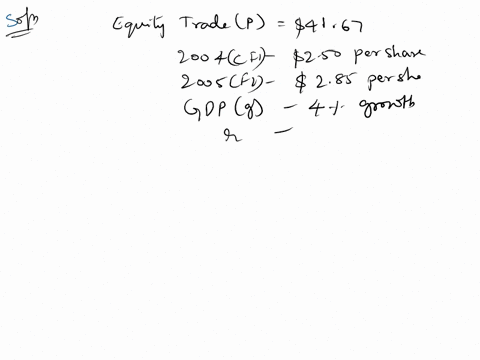 Soln
Equity Trade (P) = $41.67
2004 (CF1) - $2.50 per share
2005 (F2) - $2.85 per sha
GDP (g) - 4% growth
r -